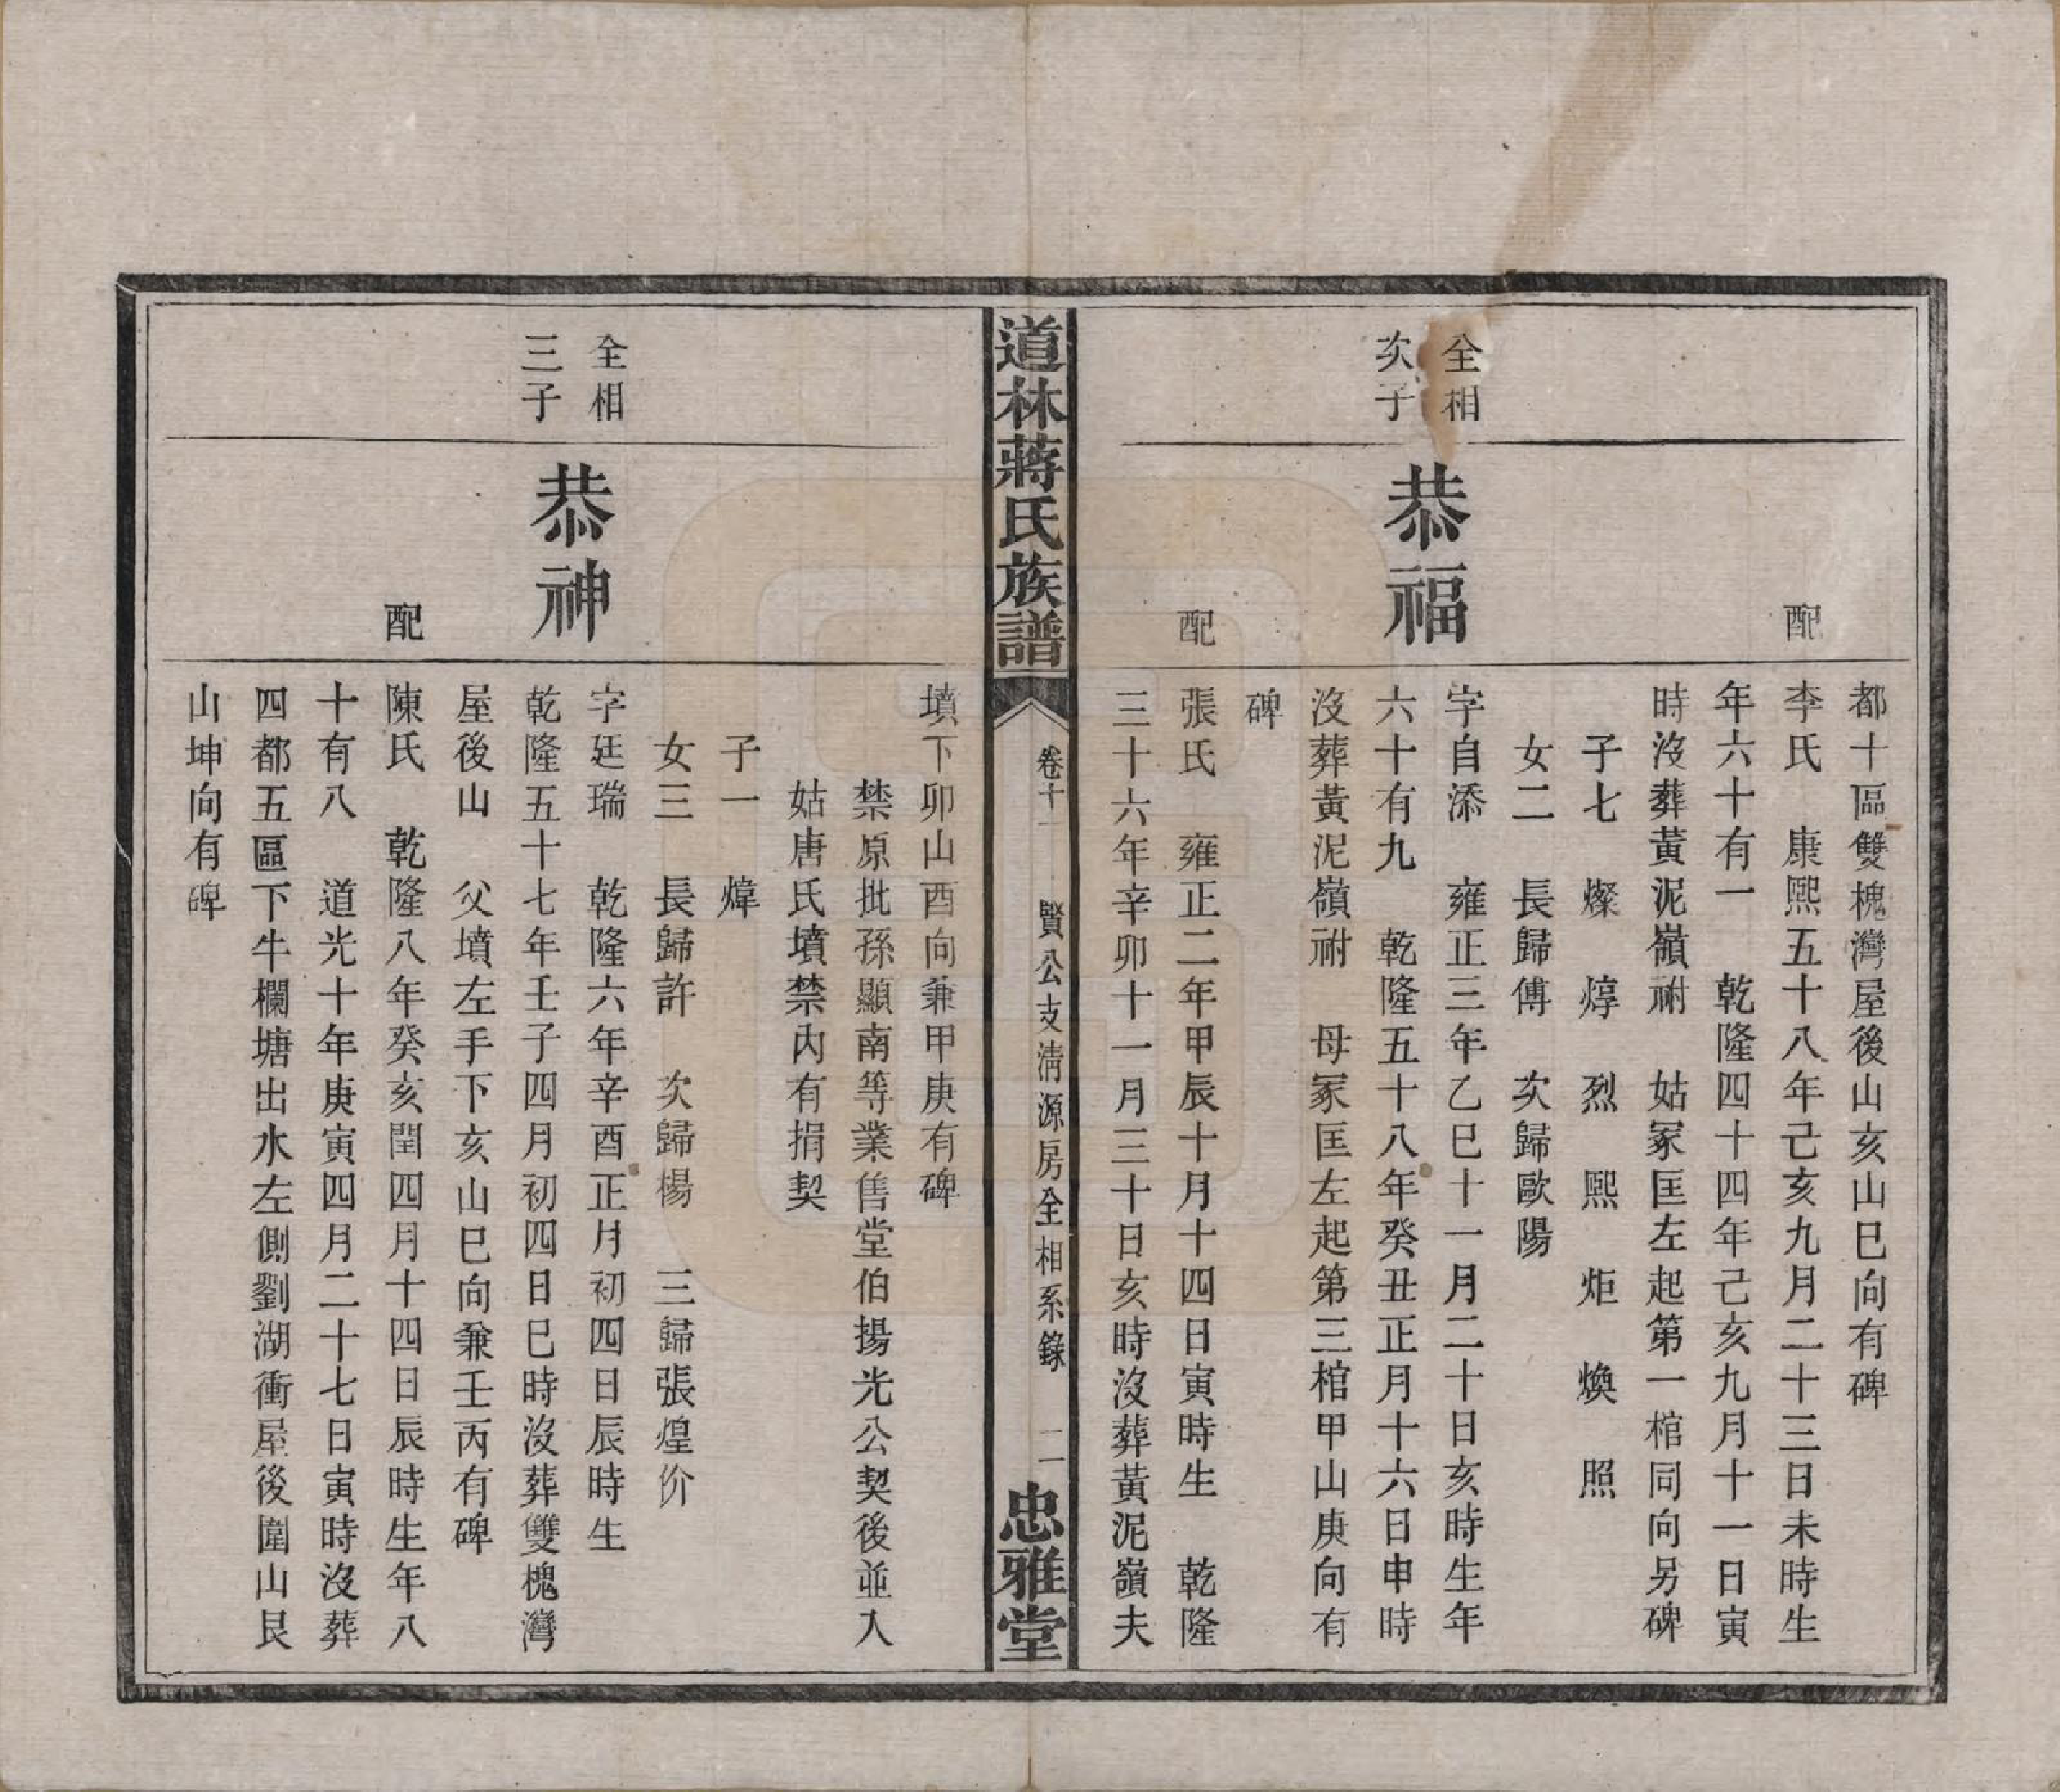 都十區雙槐灣屋後山亥山巳向有碑
配
李氏　康熙五十八年己亥九月二十三日未時生
年六十有一　乾隆四十四年己亥九月十一日寅
時沒葬黃泥嶺祔　姑冢匡左起第一棺同向另碑
子七　燦　焞　烈　熙　炬　煥　照
女二　長歸傅　次歸歐陽
全相
次子
恭福
字自添　雍正三年乙巳十一月二十日亥時生年
六十有九　乾隆五十八年癸丑正月十六日申時
沒葬黃泥嶺祔　母冢匡左起第三棺甲山庚向有
碑
配
張氏　雍正二年甲辰十月十四日寅時生　乾隆
三十六年辛卯十一月三十日亥時沒葬黃泥嶺夫
道林蔣氏族譜
卷十一　賢公支清源房全相系錄　二
忠雅堂
墳下卯山酉向兼甲庚有碑
禁原批孫顯南等業售堂伯揚光公契後並入
姑唐氏墳禁內有捐契
子一　煒
女三　長歸許　次歸楊　三歸張煌价
全相
三子
恭神
字廷瑞　乾隆六年辛酉正月初四日辰時生
乾隆五十七年壬子四月初四日巳時沒葬雙槐灣
屋後山　父墳左手下亥山巳向兼壬丙有碑
配
陳氏　乾隆八年癸亥閏四月十四日辰時生年八
十有八　道光十年庚寅四月二十七日寅時沒葬
四都五區下牛欄塘出水左側劉湖衝屋後圍山艮
山坤向有碑